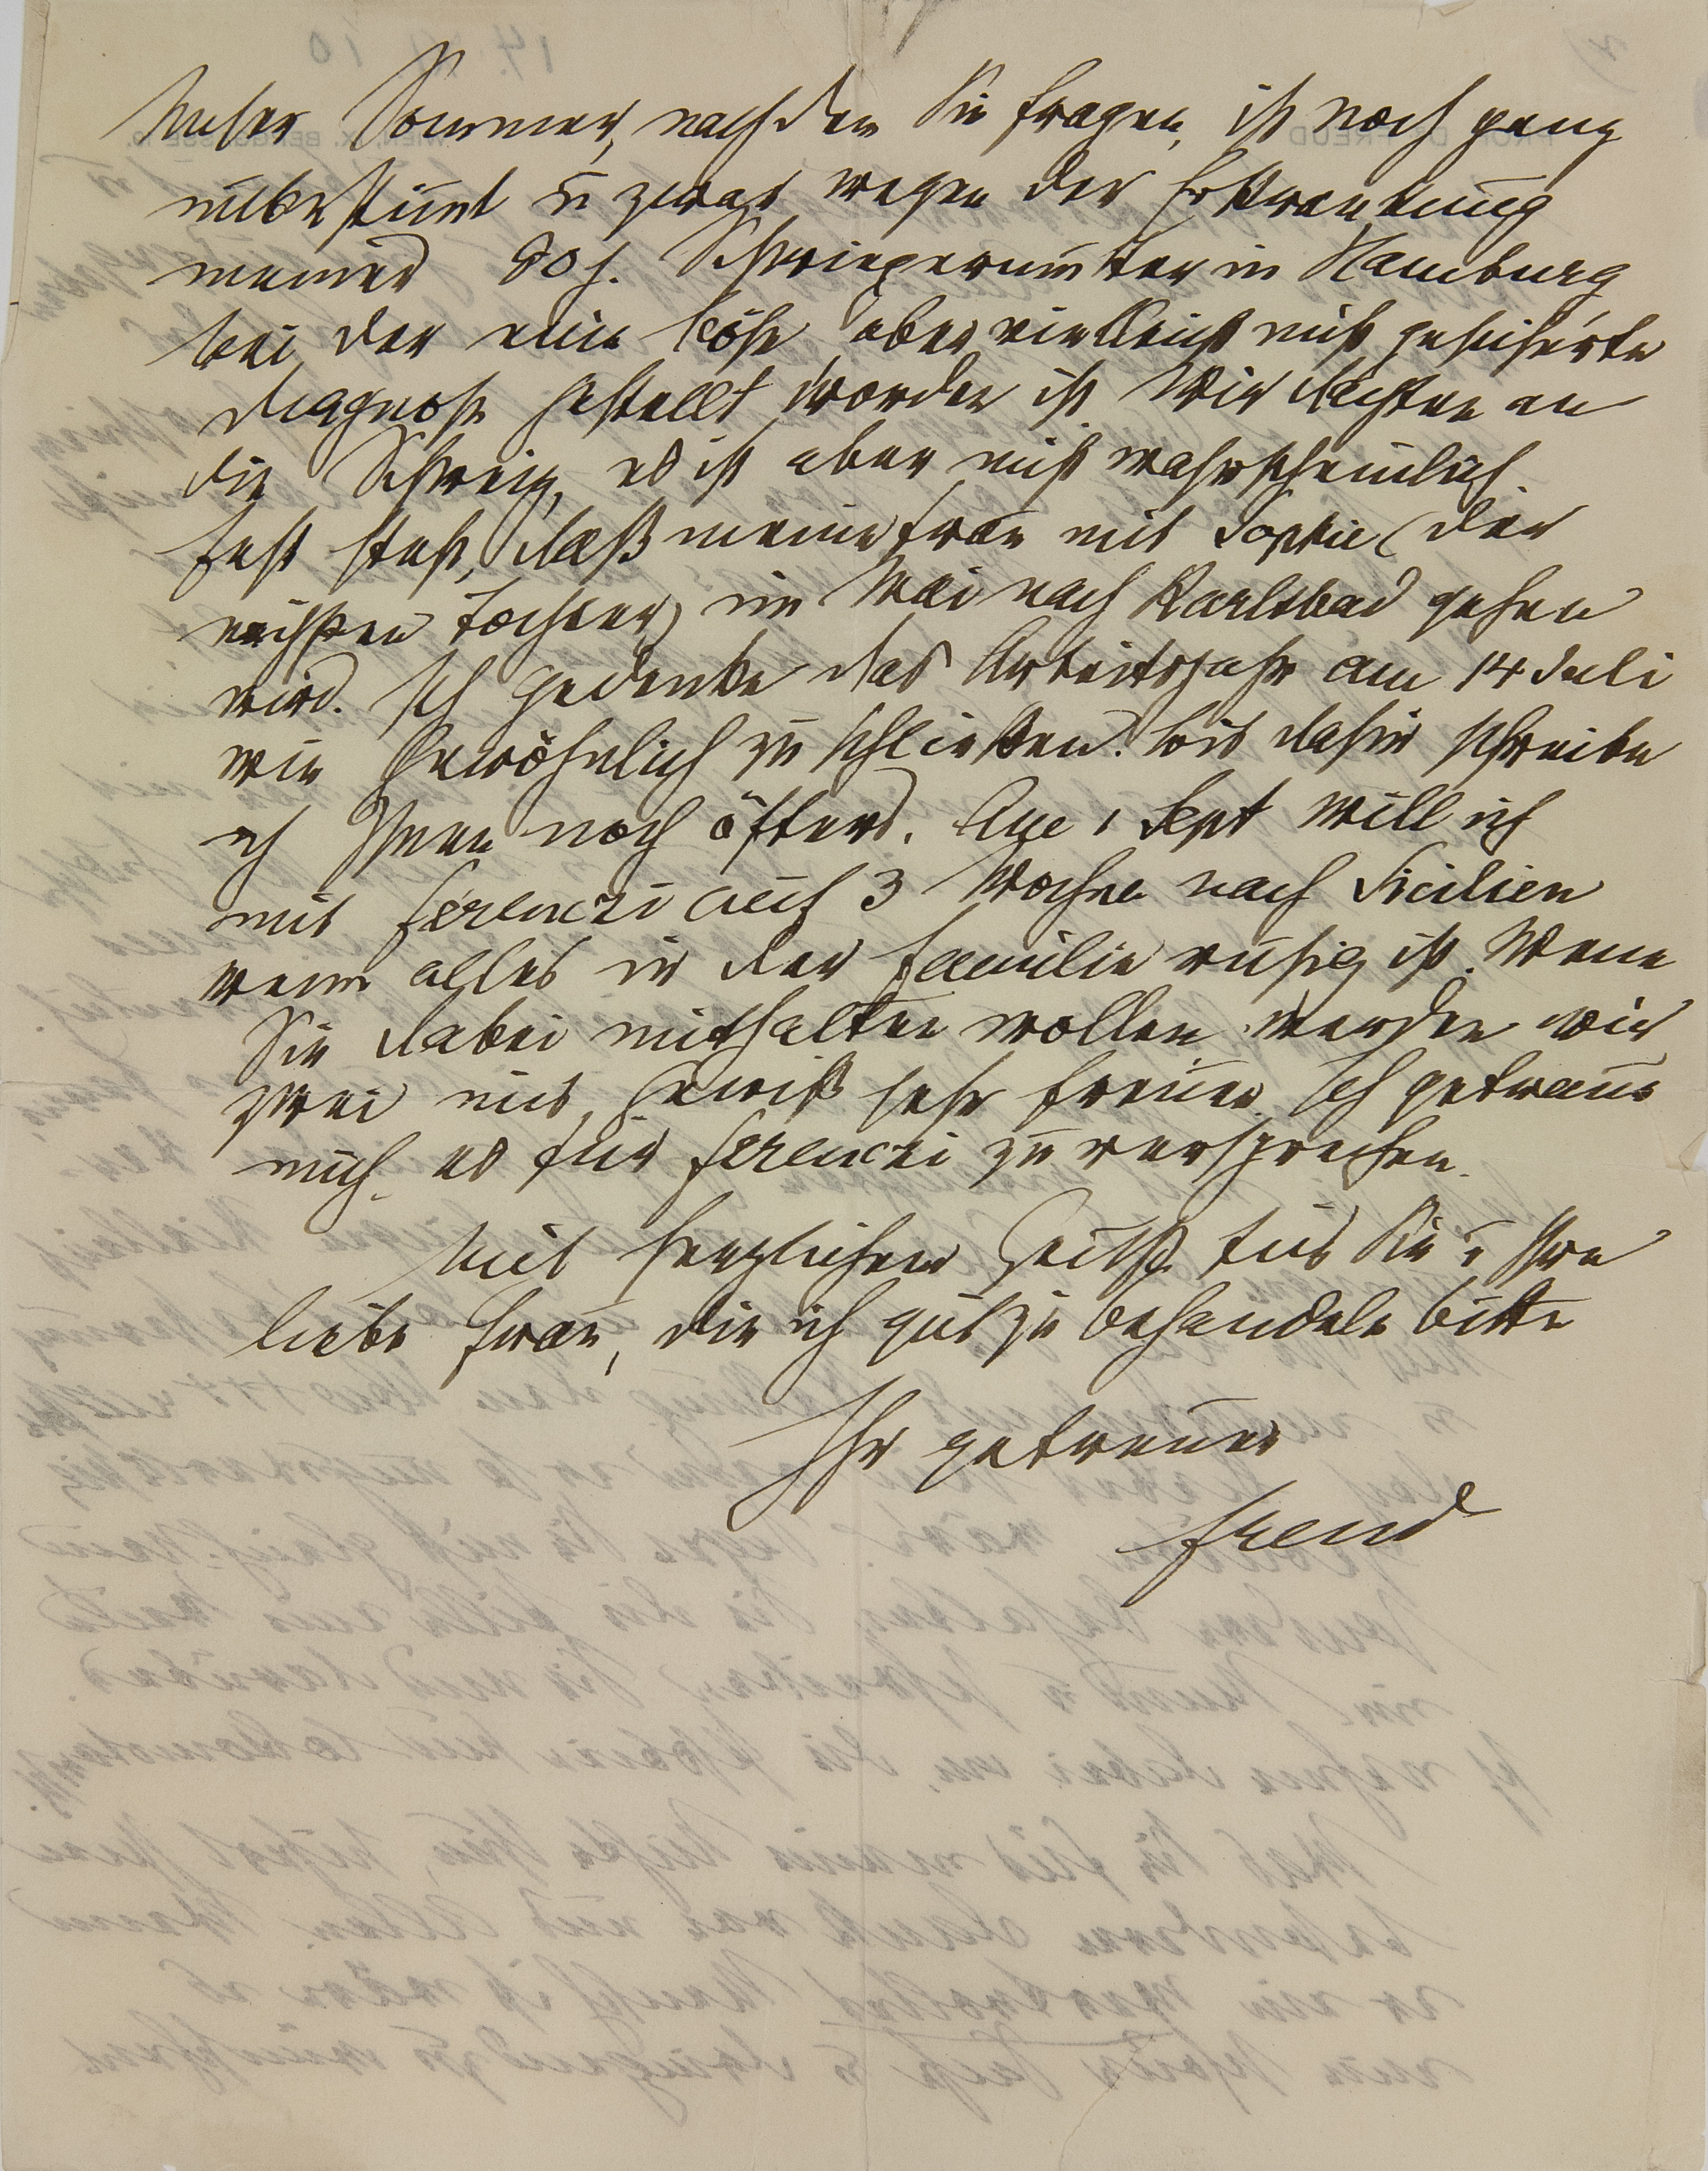 Unser Sommer, nach dem Sie fragen, ist noch ganz
unbestimmt u zwar wegen der Erkrankung
meiner 80j. Schwiegermutter in Hamburg
bei der eine böse, aber vielleicht nicht gesicherte
Diagnose gestellt worden ist. Wir dachten an
die Schweiz, es ist aber nicht wahrscheinlich.
Fest steht, daß meine Frau mit Sophie (der
nächsten Tochter) im Mai nach Karlsbad gehen
wird. Ich gedenke das Arbeitsjahr am 14 Juli
wie gewöhnlich zu schließen. Bis dahin schreibe
ich Ihnen noch öfters. Am 1 Sept will ich
mit Ferenczi auf 3 Wochen nach Sicilien
wenn alles in der Familie ruhig ist. Wenn
Sie dabei mithalten wollen werden wir
zwei uns gewiß sehr freuen. Ich getraue
mich es für Ferenczi zu versprechen.
Mit herzlichem Gruß für Sie u Ihre
liebe Frau, die ich gut zu behandeln bitte
Ihr getreuer
Freud